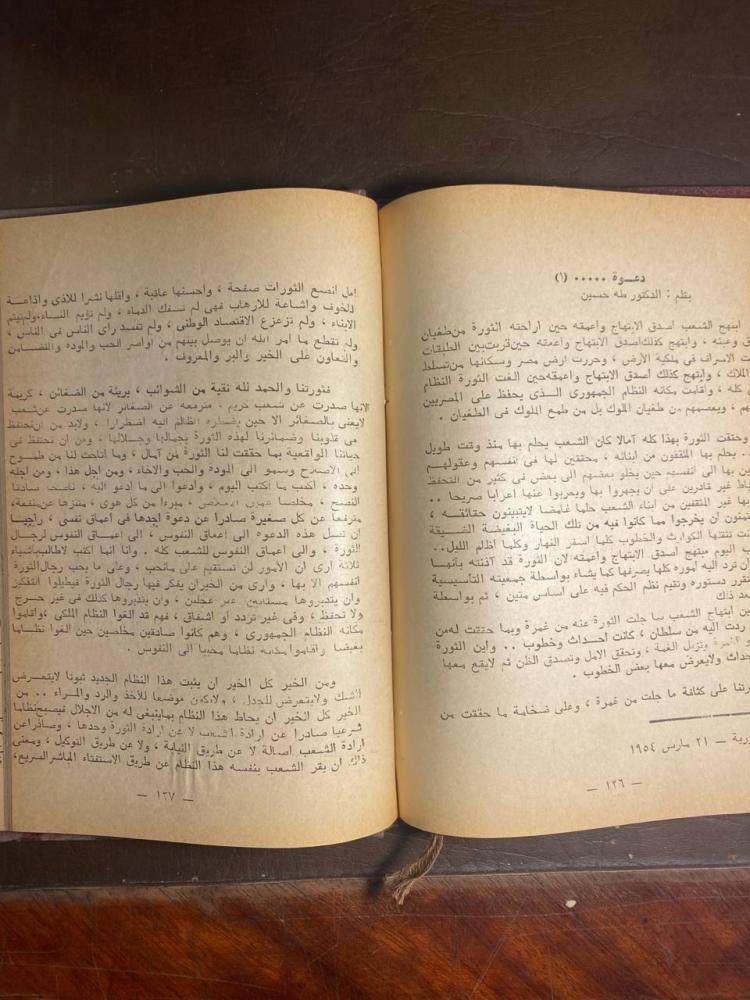 دعـوة ..... (١)
بقلم : الدكتور طه حسين
ابتهج الشعب اصدق الابتهاج واعمقه حين اراحته الثورة من طغيان
وعبثه ، وابتهج كذلك اصدق الابتهاج واعمقه حين قربت بين الطبقات
الاسراف فى ملكية الأرض ، وحررت ارض مصر وسكانها من تسلط
الملاك ، وابتهج كذلك أصدق الابتهاج واعمقه حين الغت الثورة النظام
كله ، واقامت مكانه النظام الجمهورى الـذى يحفظ على المصريين
، ويعصمهم من طغيان الملوك بل من طمع الملوك فى الطغيان .
وحققت الثورة بهذا كله آمالا كان الشعب يحلم بها منذ وقت طويل
. يحلم بها المثقفون من أبنائه ، محققين لها فى انفسهم وعقولهم
بها الى انفسهم حين يخلو بعضهم الى بعض فى كثير من التحفظ
غير قادرين على ان يجهروا بها ويعربوا عنها اعرابا صريحا ..
بها غير المثقفين من أبناء الشعب حلما غامضا لايتبينون حقائقـه ،
ان يخرجوا مما كانوا فيه من تلك الحياة البغيضة الضـيقة
الكوارث والخطوب كلها اسفر النهار وكلما اظلم الليل..
اليوم مبتهج أصدق الابتهاج واعمقه لان الثورة قد آذنته بأنهـا
ان ترد اليه أموره كلها يصرفها كما يشاء بواسطة جمعيته التأسيسية
دستوره وتقيم نظم الحكم فيه على اساس متين ، ثم بواسطة
بعد ذلك
ابتهاج الشعب بما جلت الثورة عنه من غمرة وبما حققت له من
ردت اليه من سلطان ، كانت احداث وخطوب .. وأين الثورة
الغمرة وتزيل الغمة ، وتحقق الأمل وتصدق الظن ثم لايقع معها
ولايعرض معها بعض الخطوب .
على كثافة ما جلت من غمرة ، وعلى ضخامة ما حققت من
— ٢١ مارس ١٩٥٤
— ١٢٦ —
امل أنصع الثورات صفحة ، واحسنها عاقبة ، واقلها نشرا للاذى واذاعـة
للخوف واشاعة للارهاب فهى لم تسفك الدماء ، ولم تؤيم النساء،ولم تيتم
الابناء ، ولم تزعزع الاقتصاد الوطنى ، ولم تفسد رأى الناس فى الناس ،
ولم تقطع ما امر الله ان يوصل بينهم من أواصر الحب والموده والتضـامن
والتعاون على الخير والبر والمعروف .
فثورتنا والحمد لله نقية من الشوائب ، بريئة من الضغائن ، كريمة
لانها صدرت عن شعب كريم ، مترفعة عن الصغائر لانها صدرت عن شعب
لايعنى بالصغائر الا حين يضطره الظالم اليه اضطرارا ، ولابد من ان نحتفظ
فى قلوبنا وضمائرنا لهذه الثورة بجمالها وجـلالها ، ومن ان نحتفظ فى
حياتنا الواقعية بما حققت لنا الثورة من آمال ، وما أتاحت لنا من طمـوح
الى الاصلاح وسمو الى المودة والحب والاخاء ، ومن اجل هذا ، ومن اجله
وحده ، اكتب ما اكتب اليوم ، وأدعوا الى ما ادعو اليه ، ناصحا صادقا
النصح ، مخلصا عميق الاخلاص ، مبرءا من كل هوى ، متنزها عن منفعة،
مترفعا عن كل صغيرة صادرا عن دعوة أجدها فى أعماق نفسى ، راجيـا
ان تصل هذه الدعوه الى أعماق النفوس ، الى اعمـاق النفوس لرجـال
الثورة ، والى اعماق النفوس للشعب كله . وانا انما اكتب لاطالب باشياء
ثلاثة أرى أن الأمور لن تستقيم على مانحب ، وعلى ما يحب رجال الثورة
أنفسهم الا بها ، وأرى من الخير ان يفكر فيها رجال الثورة فيطيلوا التفكير
وان يتدبروها مستانين غير عجلين ، وان يتدبروها كذلك فى غير حـرج
ولا تحفظ ، وفى غير تردد أو اشفاق ، فهم قد ألغوا النظام الملكى ، واقاموا
مكانه النظام الجمهورى ، وهم كانوا صادقين مخلصين حين الغوا نظـاما
بغيضا واقاموا مكانه نظاما محببا الى النفوس .
ومن الخير كل الخير ان يثبت هذا النظام الجديد ثبوتا لايتعـرض
للشك ولايتعرض للجدل ، ولايكون موضعا للأخذ والرد والمـراء .. من
الخير كل الخير ان يحاط هذا النظام بما ينبغى له من الاجلال فيصبح نظاما
شرعيا صادرا عن ارادة الشعب لا عن ارادة الثورة وحدها ، وصادرا عن
ارادة الشعب اصالة لا عن طريق النيابة ، ولا عن طريق التوكيل ، ومعنى
ذلك ان يقر الشعب بنفسه هذا النظام عن طريق الاستفتاء المباشر السريع،
— ١٢٧ —